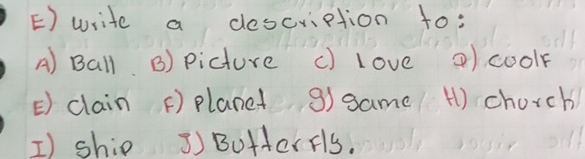 E) write a description to:
A) Ball. B) Picture C) Love D) cook
E) clain F) Planet g) game H) church
I) ship J) Butterfly.